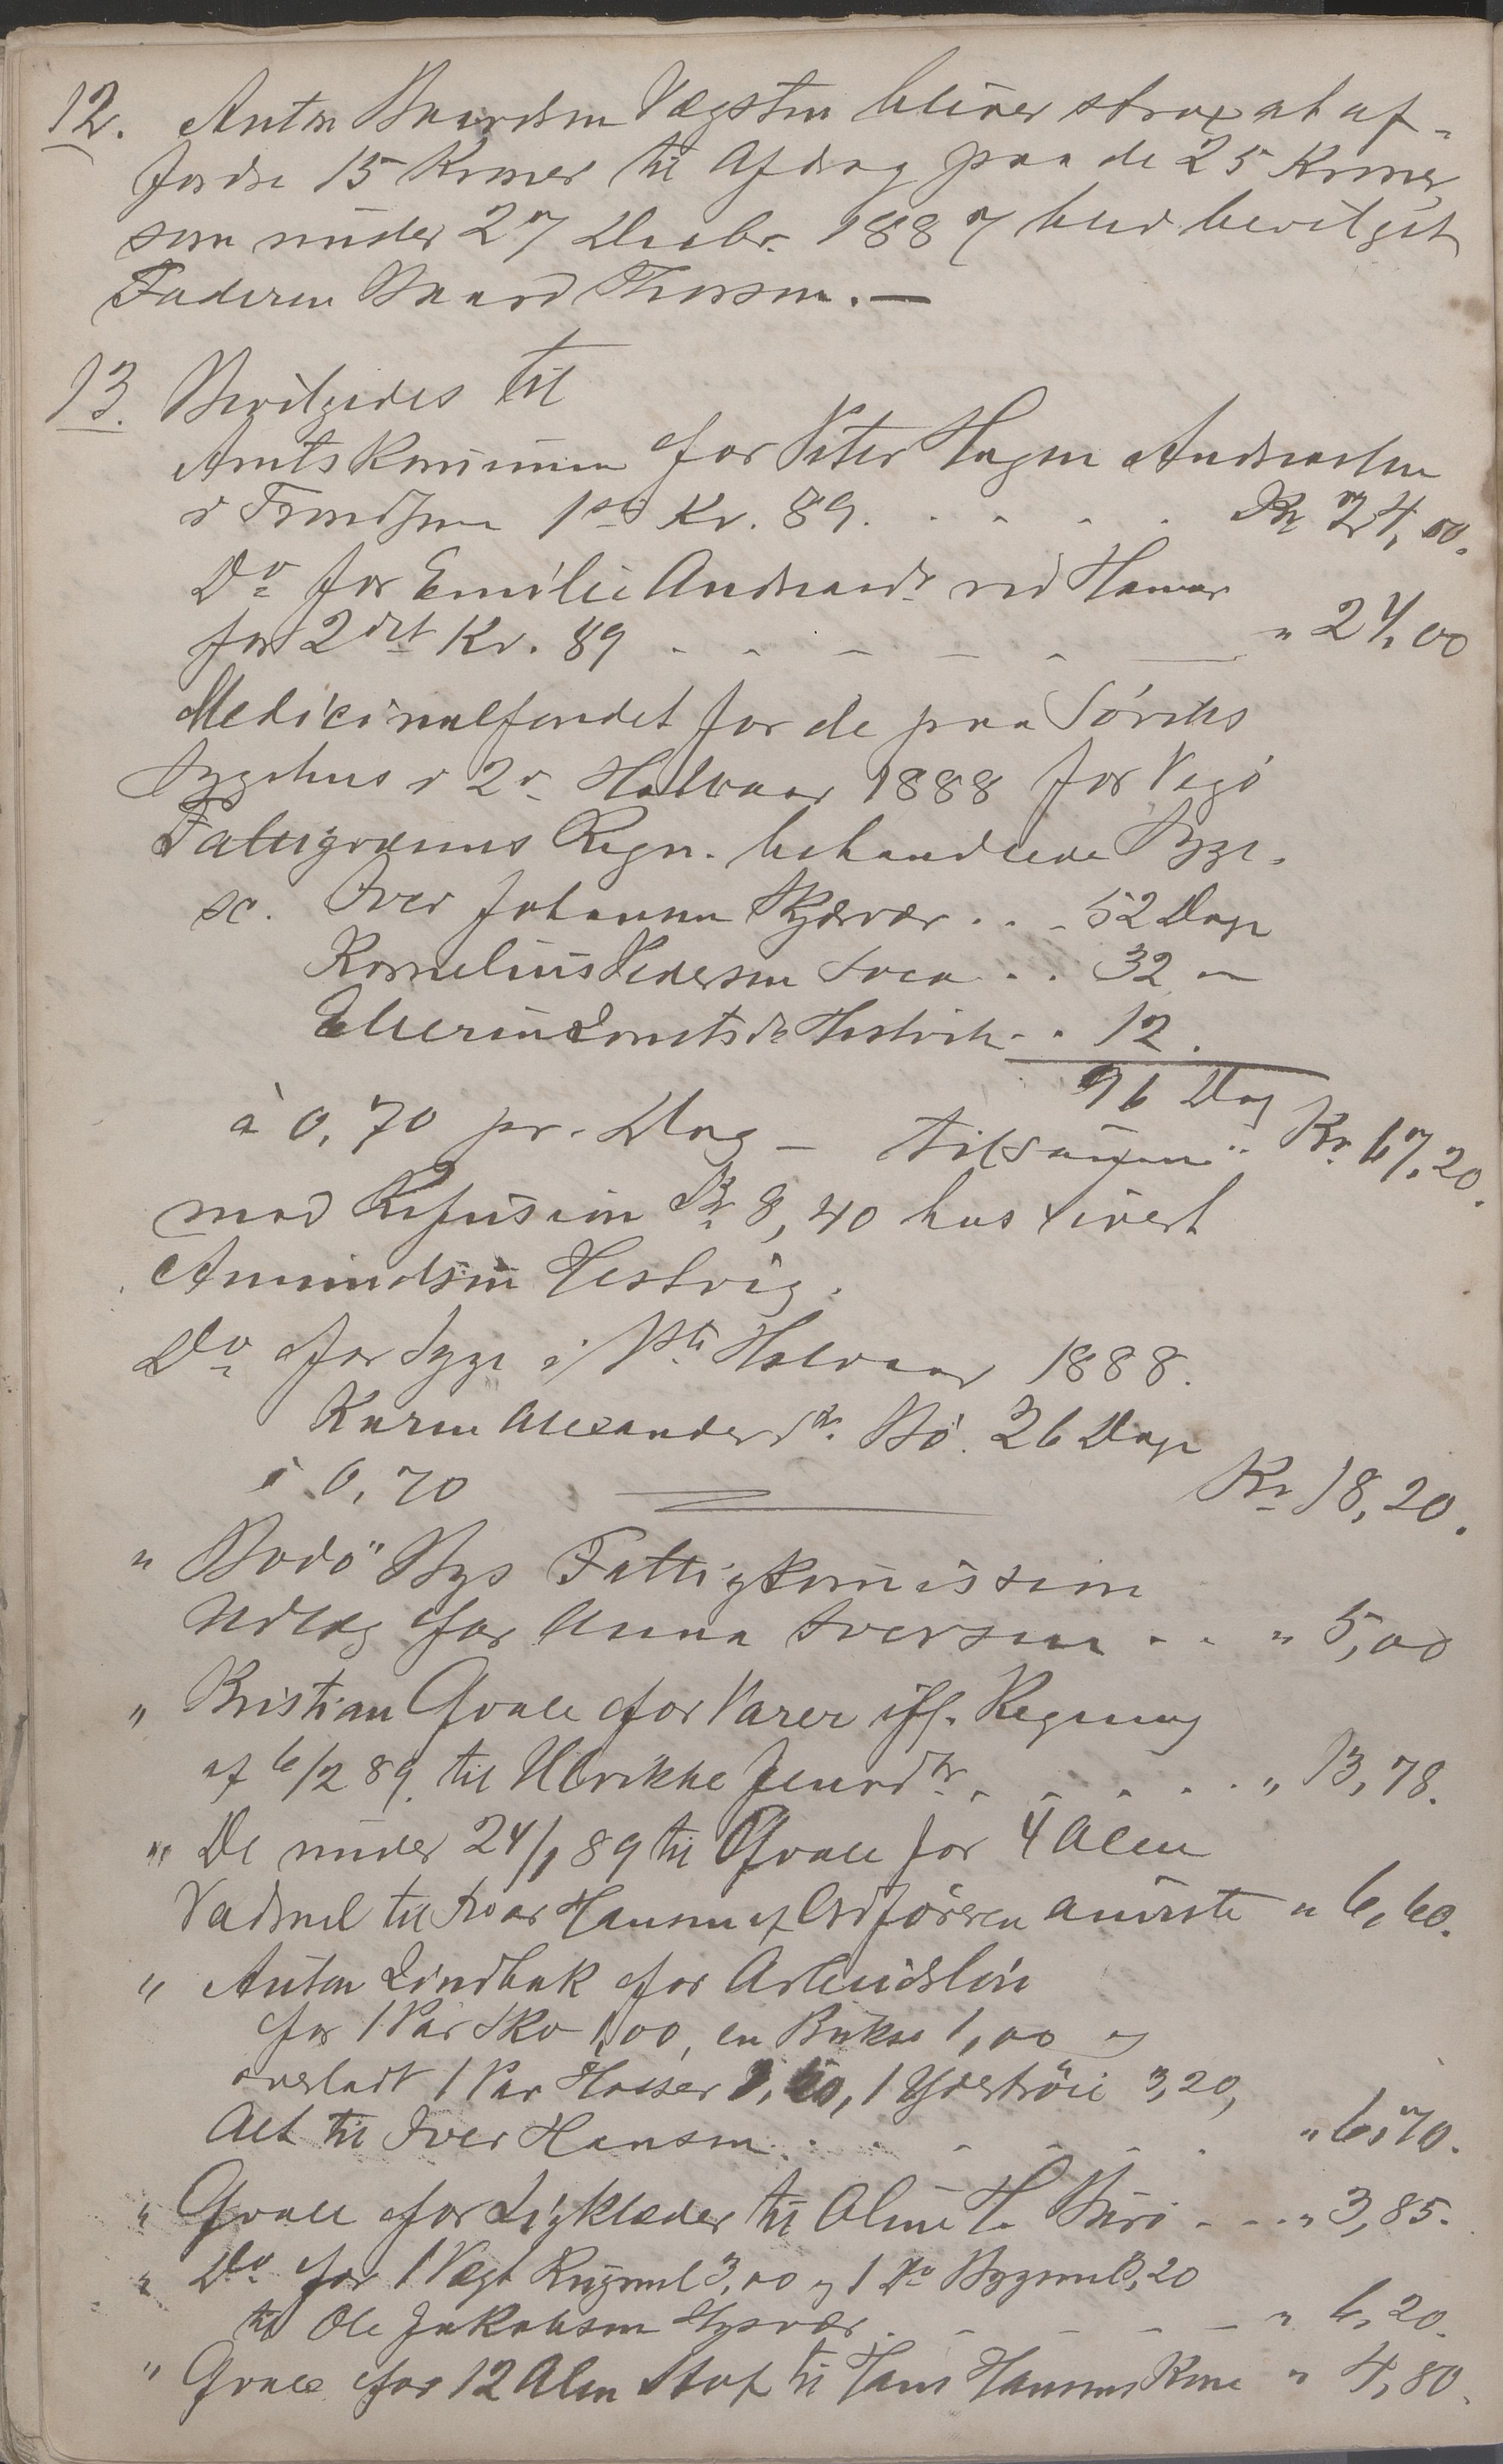 12. Anton Baardsen Vægsten bliver strax at af-
fordre 15 Kroner til Afdrag paa de 25 Kroner,
som under 27 Decbr. 1887 blev bevilget
Faderen Baard Thorsen. —
13. Bevilgedes til
Amtskommunen for Peter Hagen Andreasen
i Trondhjem 1ste Kv. 89. . . . . Kr 24,00.
Do for Emilie Andreasdr ved Hamar
for 2det Kv. 89 . - - - - - " 24,00
Medicinalfondet for de paa Søviks
Sygehus i 2. Halvaar 1888 for Vegø
Fattigvæsens Regn. behandlede Syge.
sc. Iver Johansen Skjærvær . . . 52 Dage
Kornelius Pedersen Svea . . 32 "
Elverin Lorntsdr Hestvik . . 12.
96 Dag
à 0,70 pr. Dag – tilsammen .. Kr. 67,20.
mod Refusion Kr 8,40 hos Sivert
Amundsen Hestvig.
Do for Syge i 1ste Halvaar 1888.
Karen Alexandersdr. Bø. 26 Dage
à 0,70 Kr 18,20.
" Bodø Bys Fattigkommission
Udlæg for Anna Iversen . . " 5,00
" Kristian Qvale for Varer ifl. Regning
af 6/2 89. til Ulrikke Jensdtr. . . . . " 13,78.
" De under 24/1 89 til Qvale for 4 Alen
Vadmel til Ivar Hansen af Ordføreren anviste " 6,60.
" Anton Lindbak for Arbeidsløn
for 1 Par Sko 1,00, en Bukse 1,00 og
overladt 1 Par Hoser 1,50, 1 Ydertrøie 3,20,
Alt til Iver Hansen . . . . . . " 6,70.
" Qvale for Ligklæder til Oline H. - - - " 3,85.
" Do for 1 Vægt Rugmel 3,00 og 1 Do Bygmel 3,20
til Ole Jakobsen . - - - - - " 6,20.
" Qvale for 12 Alen Stof til Hans Hansens Kone " 4,80.